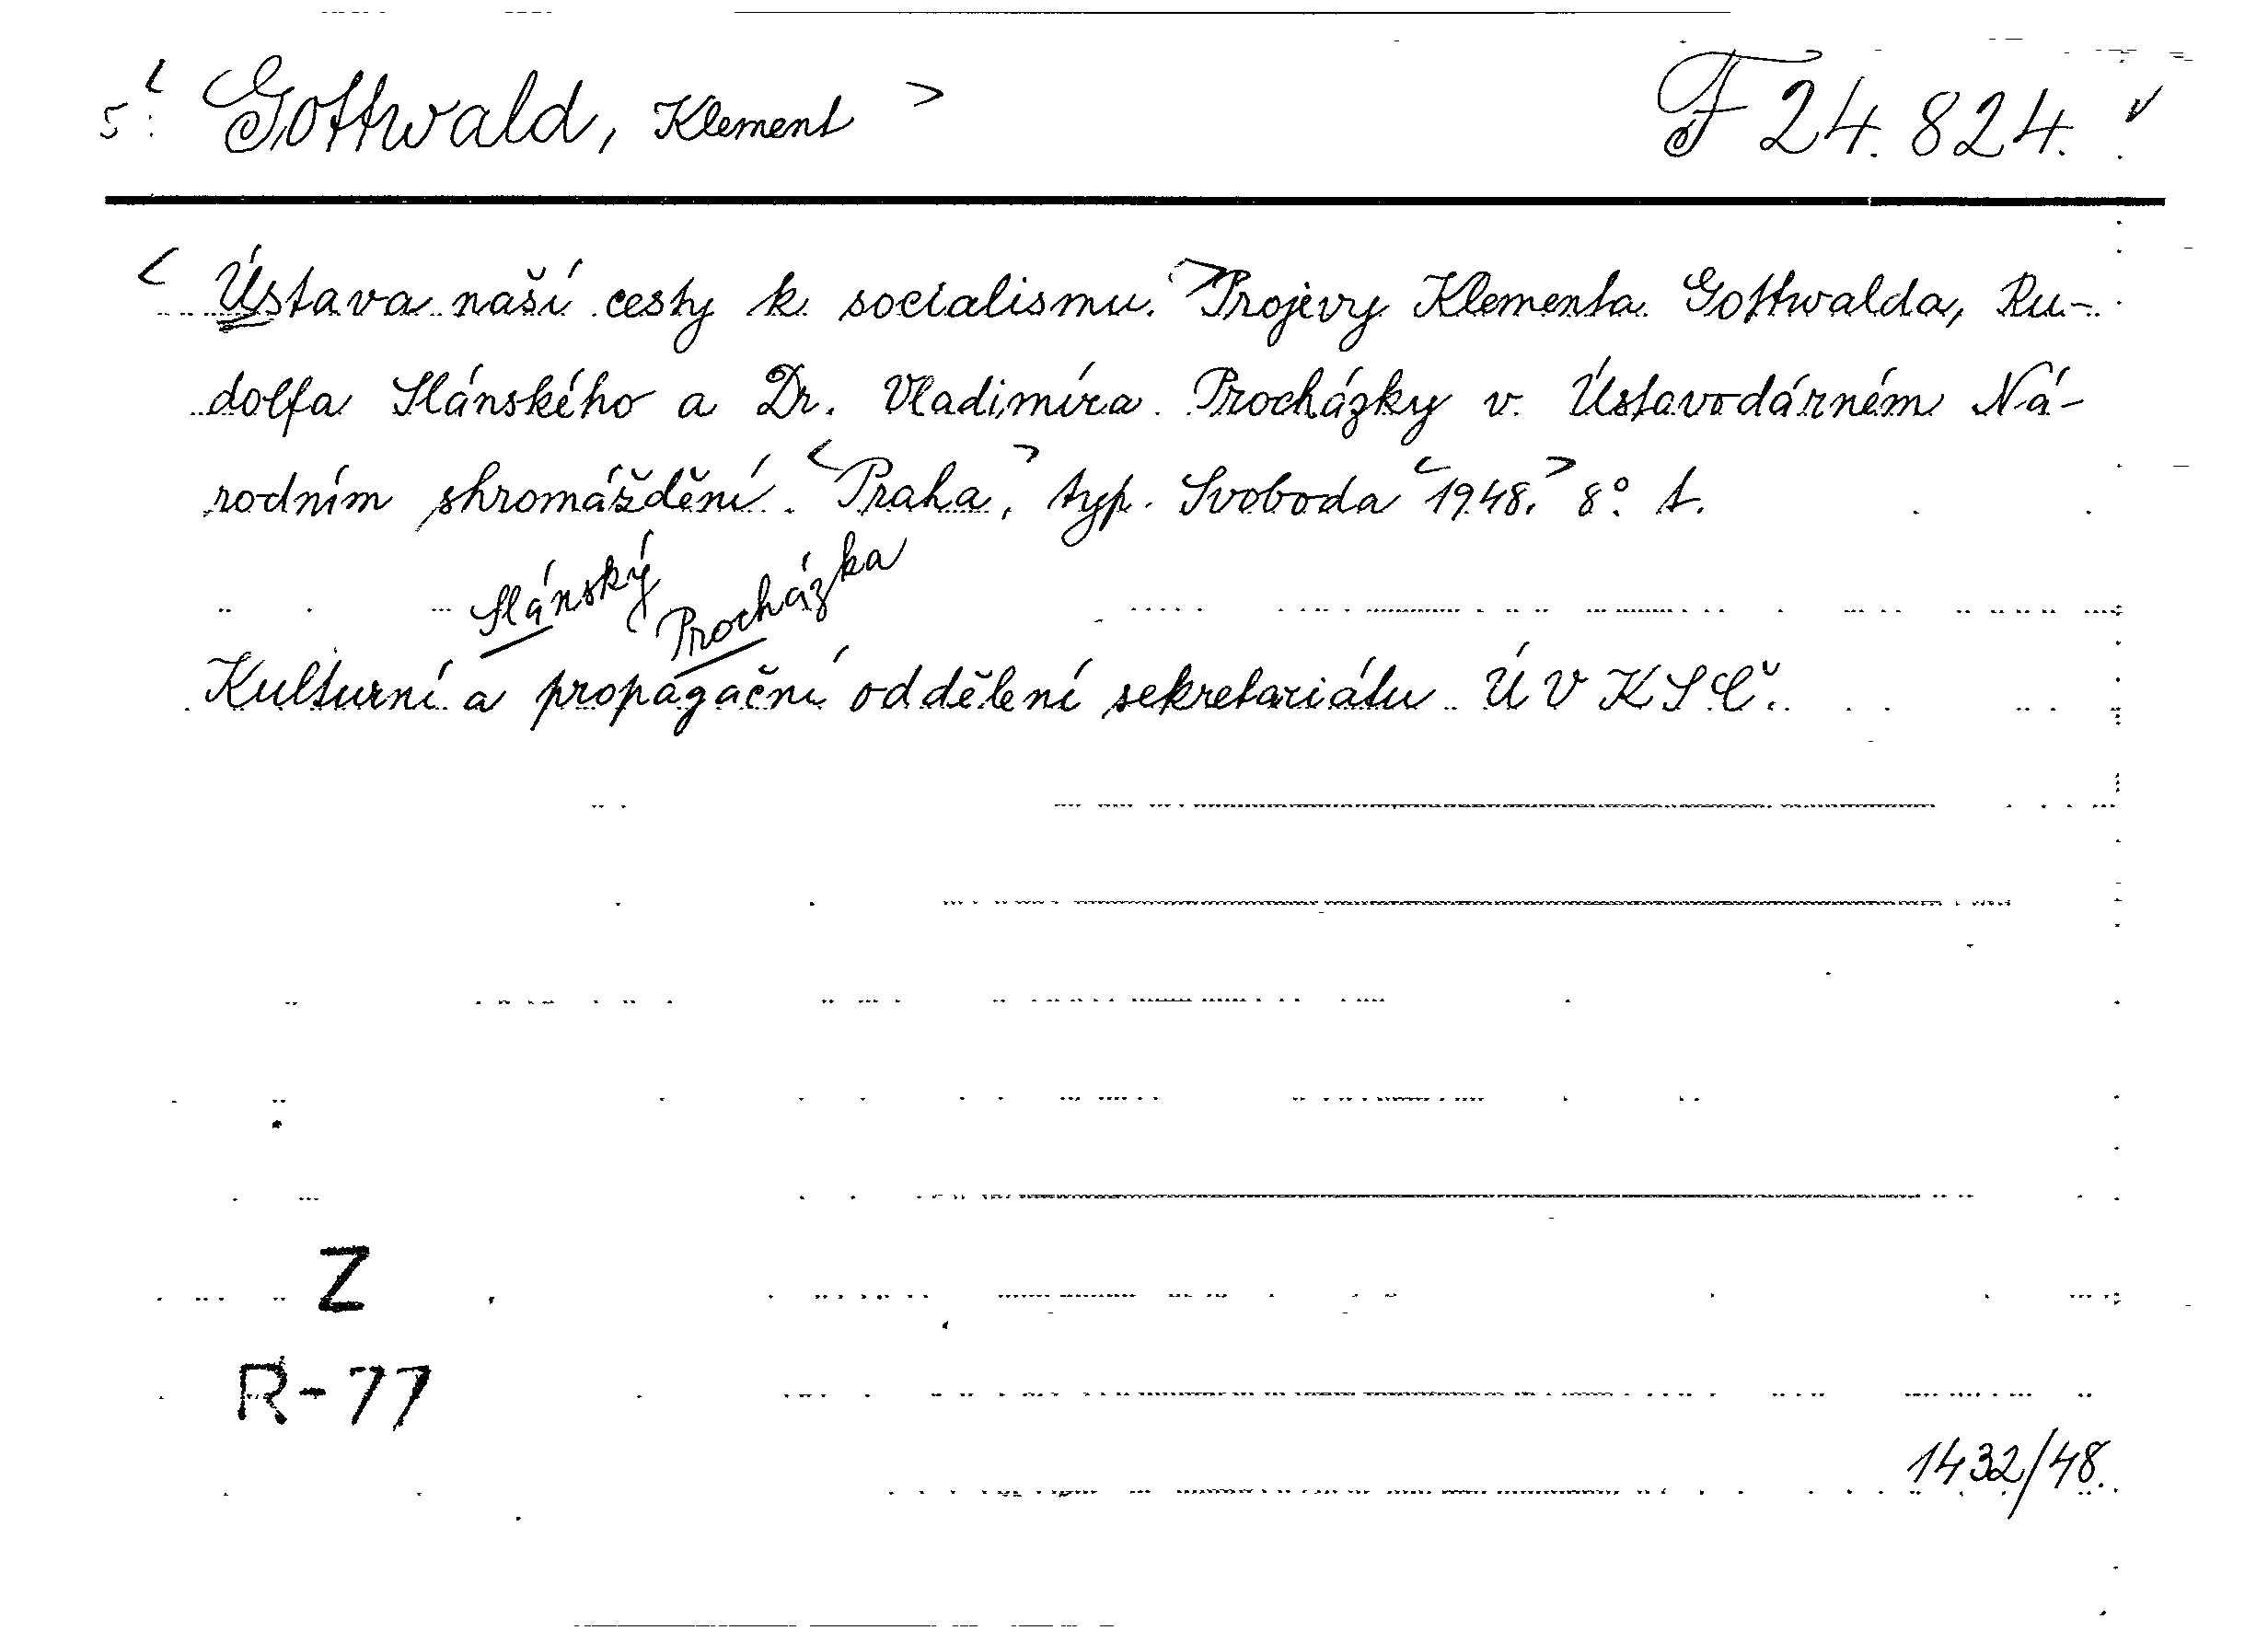 5 < Gottwald, Klement > F 24.824.
< Ústava naší cesty k socialismu. > Projevy Klementa Gottwalda, Ru-
dolfa Slánského a Dr. Vladimíra Procházky v Ústavodárném Ná-
rodním shromáždění. < Praha, > typ. Svoboda < 1948. > 8°. t.
Slánský
Procházka
Kulturní a propagační oddělení sekretariátu Ú V K S Č.
Z
R-77
1432/48.